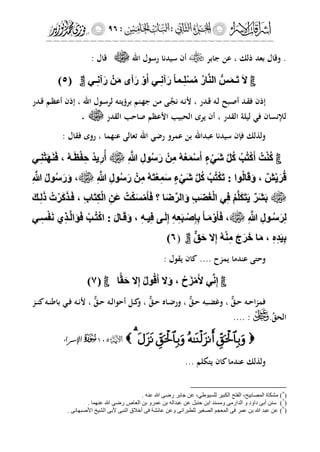 إشراق الإسراء : الباب الخامس : ٩٦
. وقال بعد ذلك ، عن جابر أن سيدنا رسول الله ﷺ قال :
لَا تَمَسُّ النَّارُ مُسْلِماً رَآنِي أَوْ رَأَى مَنْ رَآنِي (٥)
إذن فقد أصبح له قدر ، لأنه نجّى من جهنم برؤيته لرسول الله ، إذن أعظم قدر
للإنسان في ليلة القدر ، أن يرى الحبيب الأعظم صاحب القدر .
ولذلك فإن سيدنا عبدالله بن عمرو رضي الله تعالى عنهما ، روى فقال :
كُنْتُ أَكْتُبُ كُلَّ شَيْءٍ أَسْمَعُهُ مِنْ رَسُولِ اللَّهِ أُرِيدُ حِفْظَهُ ، فَنَهَتْنِي
قُرَيْشٌ ، وَقَالُوا : تَكْتُبُ كُلَّ شَيْءٍ سَمِعْتَهُ مِنْ رَسُولِ اللَّهِ ، وَرَسُولُ اللَّهِ
بَشَرٌ يَتَكَلَّمُ فِي الْغَضَبِ وَالرِّضَا ؟ فَأَمْسَكْتُ عَنْ الْكِتَابِ ، فَذَكَرْتُ ذَلِكَ
لِرَسُولِ اللَّهِ ، فَأَوْمَأَ بِإِصْبَعِهِ إِلَى فِيهِ ، وَقَالَ : اكْتُبْ فَوَالَّذِي نَفْسِي
بِيَدِهِ ، مَا خَرَجَ مِنْهُ إِلَّا حَقٌّ (٦)
وحتى عندما يمزح .... كان يقول :
إِنِّي لَأَمْزَحُ ، وَلَا أَقُولُ إِلَّا حَقًّا (٧)
فمزاحه حقٌّ ، وغضبه حقٌّ ، ورضاه حقٌّ ، وكل أحواله حقٌّ ، لأنه في باطنه كنز
الحقّ .... :
﴿ وَبِالْحَقِّ أَنزَلْنَاهُ وَبِالْحَقِّ نَزَلَ ﴾ ١٠٥ الإسراء
ولذلك عندما كان يتكلم ...
(٥) مشكاة المصابيح، الفتح الكبير للسيوطي، عن جابر رضي الله عنه .
(٦) سنن أبي داود و الدارمي ومسند ابن حنبل عن عبدالله بن عمرو بن العاص رضي الله عنهما .
(٧) عن عبد الله بن عمر فى المعجم الصغير للطبرانى وعن عائشة فى أخلاق النبى لأبى الشيخ الأصبهانى .